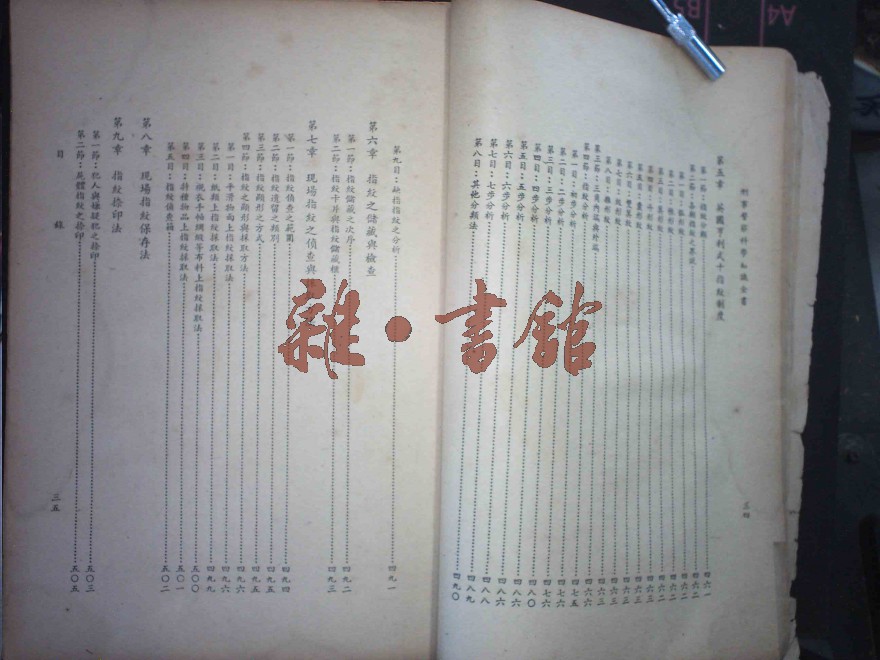 刑事警察科學知識全書
第五章 英國亨利式十指紋制度
第一節：指紋分類 四六一
第二節：各類指紋之界說 四六二
第一目：弧形紋 四六二
第二目：帳形紋
第五目：囊形紋
第六目：雙箕紋
第七目：雜形紋
第三節：三角內端與外端
第四節：指紋分析 四六六
第一目：初步分析 四七五
第二目：二步分析 四七六
第三目：三步分析 四七六
第四目：四步分析 四八〇
第五目：五步分析 四八六
第六目：六步分析 四八六
第七目：七步分析 四八八
第八目：其他分類法 四八九
四九〇
三四
第九目：缺指指紋之分析 四九一
第六章 指紋之儲藏與檢查
第一節：指紋儲藏之次序 四九二
第二節：指紋卡片與指紋儲藏櫃 四九三
第七章 現場指紋之偵查與
第一節：指紋偵查之範圍 四九四
第二節：指紋遺留之類別 四九五
第三節：指紋顯形之方式 四九五
第四節：指紋之顯形與採取方法 四九六
第一目：平滑物面上指紋採取法 四九六
第二目：紙類上指紋採取法 四九九
第三目：襯衣手帕綢緞等布料上指紋採取法 五〇〇
第四目：各種物品上指紋採取法 五〇一
第五目：指紋偵查箱 五〇二
第八章 現場指紋保存法
第九章 指紋捺印法
第一節：犯人與嫌疑犯之捺印 五〇三
第二節：屍體指紋之捺印 五〇五
目錄
三五
雜·書館
A4
B5